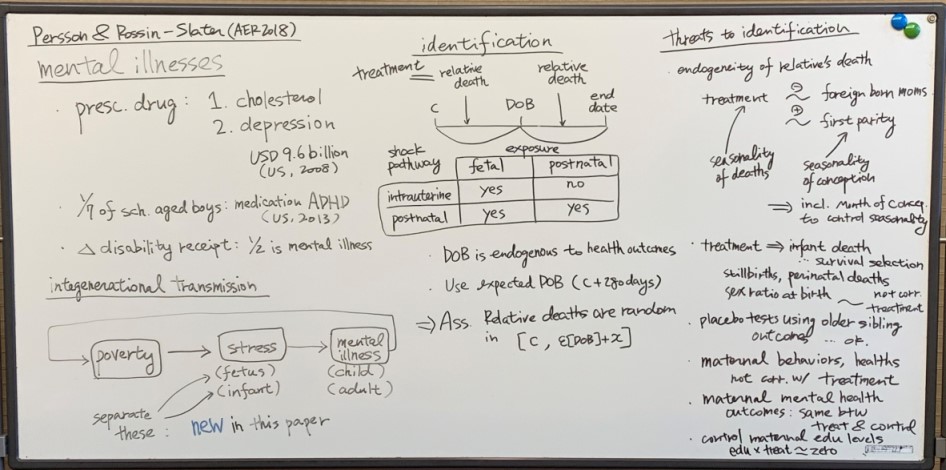 Persson & Rossin-Slater (AER 2018)
mental illnesses
· presc. drug: 1. cholesterol
2. depression
USD 9.6 billion
(US, 2008)
· 1/7 of sch. aged boys: medication ADHD
(US, 2013)
· Δ disability receipt: 1/2 is mental illness
integenerational transmission
poverty → stress → mental illness
(fetus) (child)
(infant) (adult)
separate
these: new in this paper
identification
treatment = relative death
relative death
C DoB end date
exposure
shock pathway fetal postnatal
intrauterine yes no
postnatal yes yes
· DoB is endogenous to health outcomes
· Use expected DoB (C+280days)
⇒ Ass. Relative deaths are random
in [C, E[DoB]+x]
threats to identification
· endogeneity of relative's death
treatment ⊖ ~ foreign born moms
⊕ ~ first parity
seasonality of deaths
seasonality of conception
⇒ incl. month of concep.
to control seasonality
· treatment ⇒ infant death
∵ survival selection
stillbirths, perinatal deaths
sex ratio at birth ~ not corr. treatment
· placebo tests using older sibling
outcomes ... ok.
· maternal behaviors, healths
not corr. w/ treatment
· maternal mental health
outcomes: same btw
treat & control
· control maternal edu levels
edu x treat ≃ zero